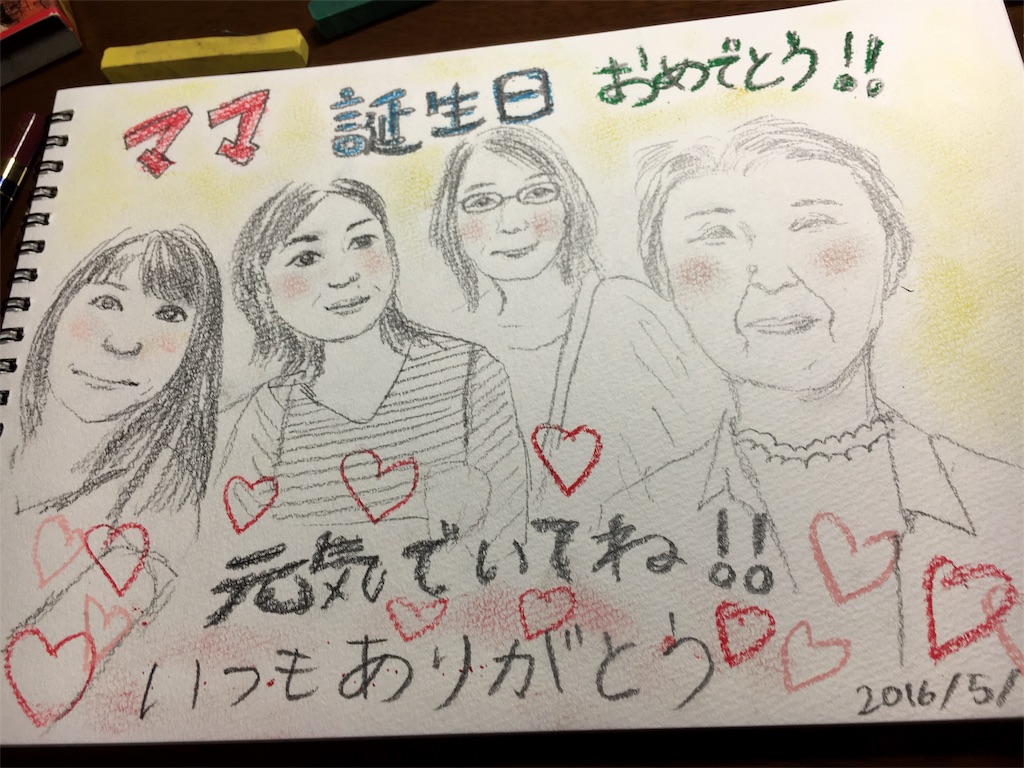 ママ 誕生日 おめでとう!!
元気でいてね!!
いつもありがとう
2016/5/